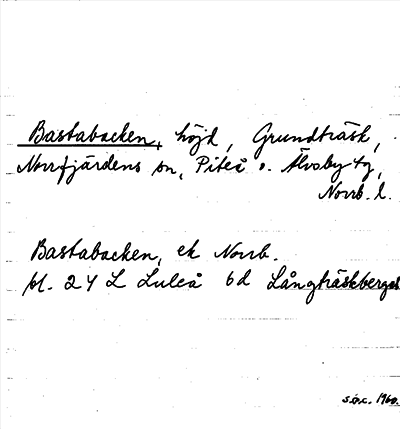 Bastabacken, höjd, Grundträsk,
Norrfjärdens sn, Piteå o. Älvsby tg,
Norrb. l.
Bastabacken, ek Norrb.
bl. 24 L Luleå 6d Långträskberget
1960.